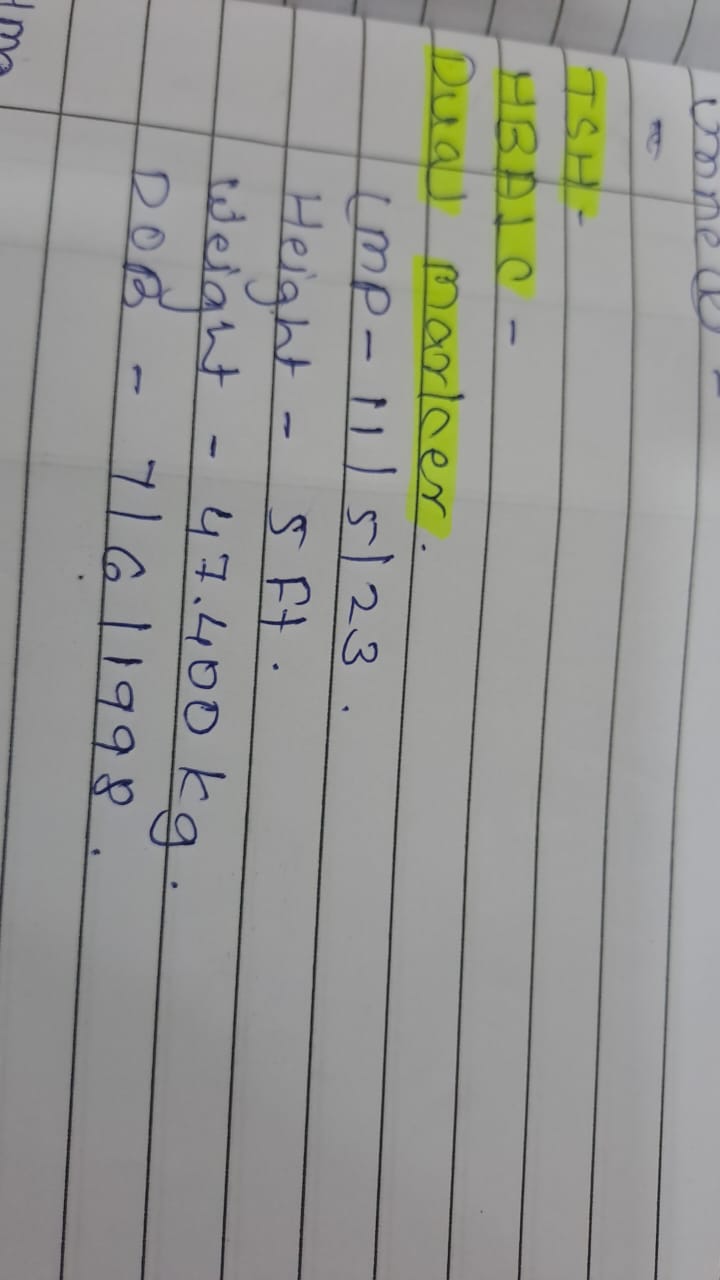 TSH-
HBA1C -
Dual marker.
LMP - 11/5/23.
Height - 5 Ft.
Weight - 47.400 kg.
DOB - 7/6/1998.